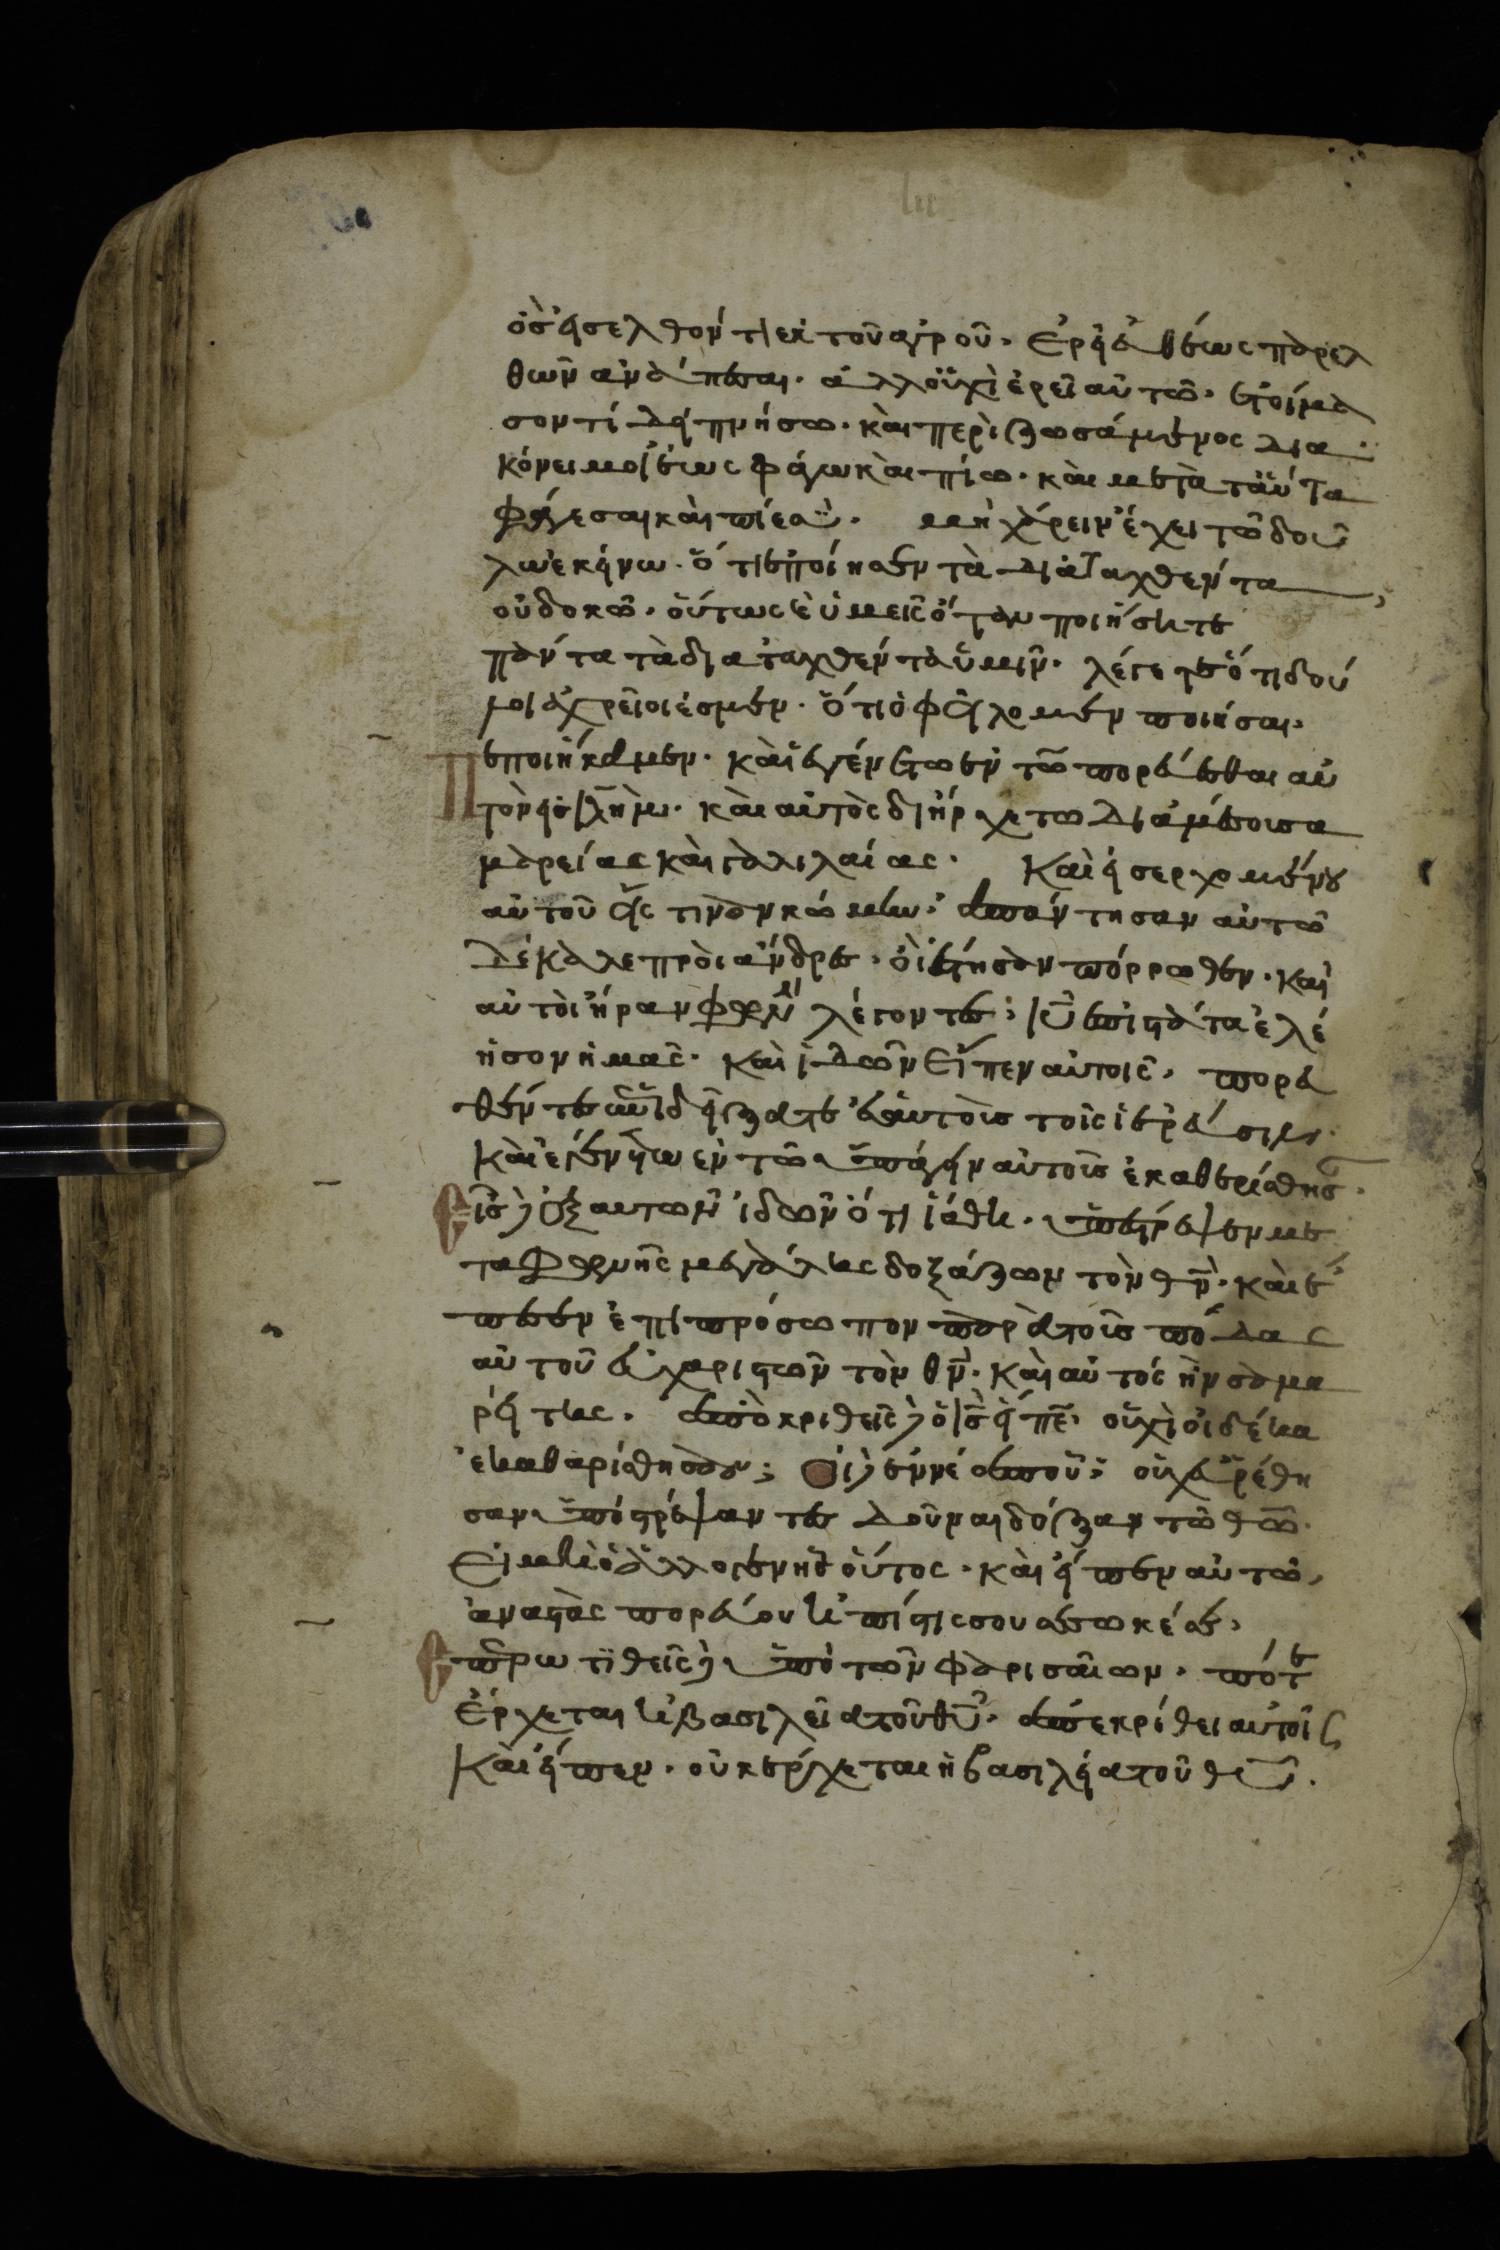 ὃς ἠσελθόντι εκ τοῦ ἀγροῦ. Ἐρεῖ ἐυθέως παρελ
θὼν ἀνάπεσαι. ἀλλοὐχὶ ἐρεῖ αὐτῶ. ἑτοίμα
σον τί δειπνήσω. καὶ περιζωσάμενος δια
κόνει μοι ἕως φάγω καὶ πίω. καὶ μετὰ ταῦτα
φάγεσαι καὶ πίεσαι. μὴ χάρειν ἔχει τῶ δου
λω εκήνω. ὅτι ἐποίησεν τὰ διαταχθέντα
οὐ δοκῶ. οὕτως καὶ ὑμεῖς ὅταν ποιήσητε
πάντα τὰ διαταχθέντα ὑμῖν. λέγεται ὅτι δου
λοι ἀχρεῖοι ἐσμέν. ὅτι ὀφείλομεν ποιῆσαι.
εποιήκαμεν. καὶ ἐγένετω ἐν τῶ πορέυεσθαι αὐ
τὸν εἰς ιλῆμ. καὶ αὐτὸς διήρχετω δια μέσου σα
μαρείας καὶ γαλιλαίας. Καὶ ἠσερχομένου
αὐτοῦ εἴς τιναν κώμην. ἀπάντησαν αὐτῶ
δέκα λεπροὶ ἄνδρες. οἳ ἔστησαν πόρρωθεν. καὶ
αὐτοὶ ἦραν φωνὴν λέγοντες. ιῦ ἐπιστάτα ἐλέ
ησον ἡμᾶς. καὶ ἰδὼν εἶπεν αὐτοῖς. πορευ
θέντες ἐπιδήξατε ἑαυτοῖς τοῖς ἱερέυσιν.
Καὶ ἐγένετω ἐν τῶ ὑπάγην αὐτοῖς ἐκαθερίσθησαν.
Εἷς δὲ ἐξ αυτῶν ἰδὼν ὅτι ἰάθη. ὑπέστρεψεν με
τα φωνῆς μεγάλης δοξάζων τὸν θν. καὶ ἔ
πεσεν ἐπι πρόσωπον παρὰ τοῖς πόδας
αὐτοῦ ἐυχαριστῶν τὸν θν. καὶ αὐτός ἦν σαμα
ρείτης. ἀποκριθεῖς δὲ ὁ ις εἶπεν. οὐχὶ οἱ δέκα
ἐκαθαρίσθησαν; Οἱ δὲ ἐννέα ποῦ; οὐχ ἑυρέθη
σαν ὑποστρέψαντες δοῦναι δόξαν τῶ θῶ.
Εἰ μὴ ὁ ἀλλογενὴς οὗτος. καὶ εἶπεν αὐτῶ,
ἀναστὰς πορέυου ἡ πίστις σου σέσωκέ σε.
Ἐπερωτιθεῖς δὲ ὑπὸ τῶν φαρισαίων. πότε
ἔρχεται ἡ βασιλεῖα τοῦ θῦ. ἀπεκρίθει αὐτοῖς
Καὶ εἶπεν. οὐκ ἔρχεται ἡ βασιλεία τοῦ θῦ.